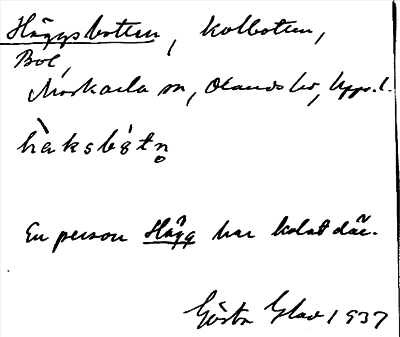 Häggsbotten, kolbotten,
Bol,
Morkarla sn, Olands hd, Upps. l.
hä̀ksbótn̥
En person Hägg har kolat där.
Gösta Glav 1937